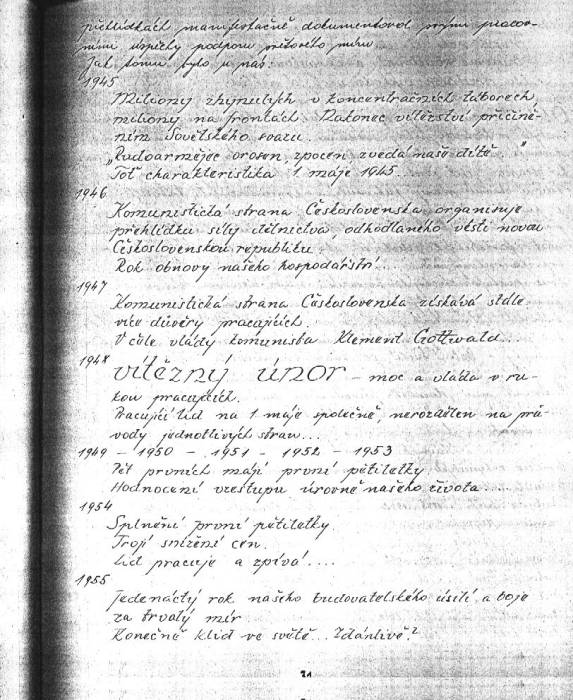 přehlídkách manifestačně dokumentoval svými pracov-
ními úspěchy podporu světového míru.
Jak tomu bylo u nás:
1945
Miliony zhynulých v koncentračních táborech,
miliony na frontách. Nakonec vítězství přičině-
ním Sovětského svazu.
„Rudoarmějec orosen, zpocen zvedá naše dítě..."
Toť charakteristika 1 máje 1945...
1946
Komunistická strana Československa organisuje
přehlídku síly dělnictva, odhodlaného vésti novou
Československou republiku.
Rok obnovy našeho hospodářství...
1947
Komunistická strana Československa získává stále
více důvěry pracujících.
V čele vlády komunista Klement Gottwald...
1948 vítězný únor - moc a vláda v ru-
kou pracujících.
Pracující lid na 1 máje společně, nerozdělen na prů-
vody jednotlivých stran...
1949 - 1950 - 1951 - 1952 - 1953
Pět prvních májů první pětiletky.
Hodnocení vzestupu úrovně našeho života....
1954
Splnění první pětiletky.
Trojí snížení cen.
Lid pracuje a zpívá....
1955
Jedenáctý rok našeho budovatelského úsilí a boje
za trvalý mír.
Konečně klid ve světě... Zdánlivě?
21